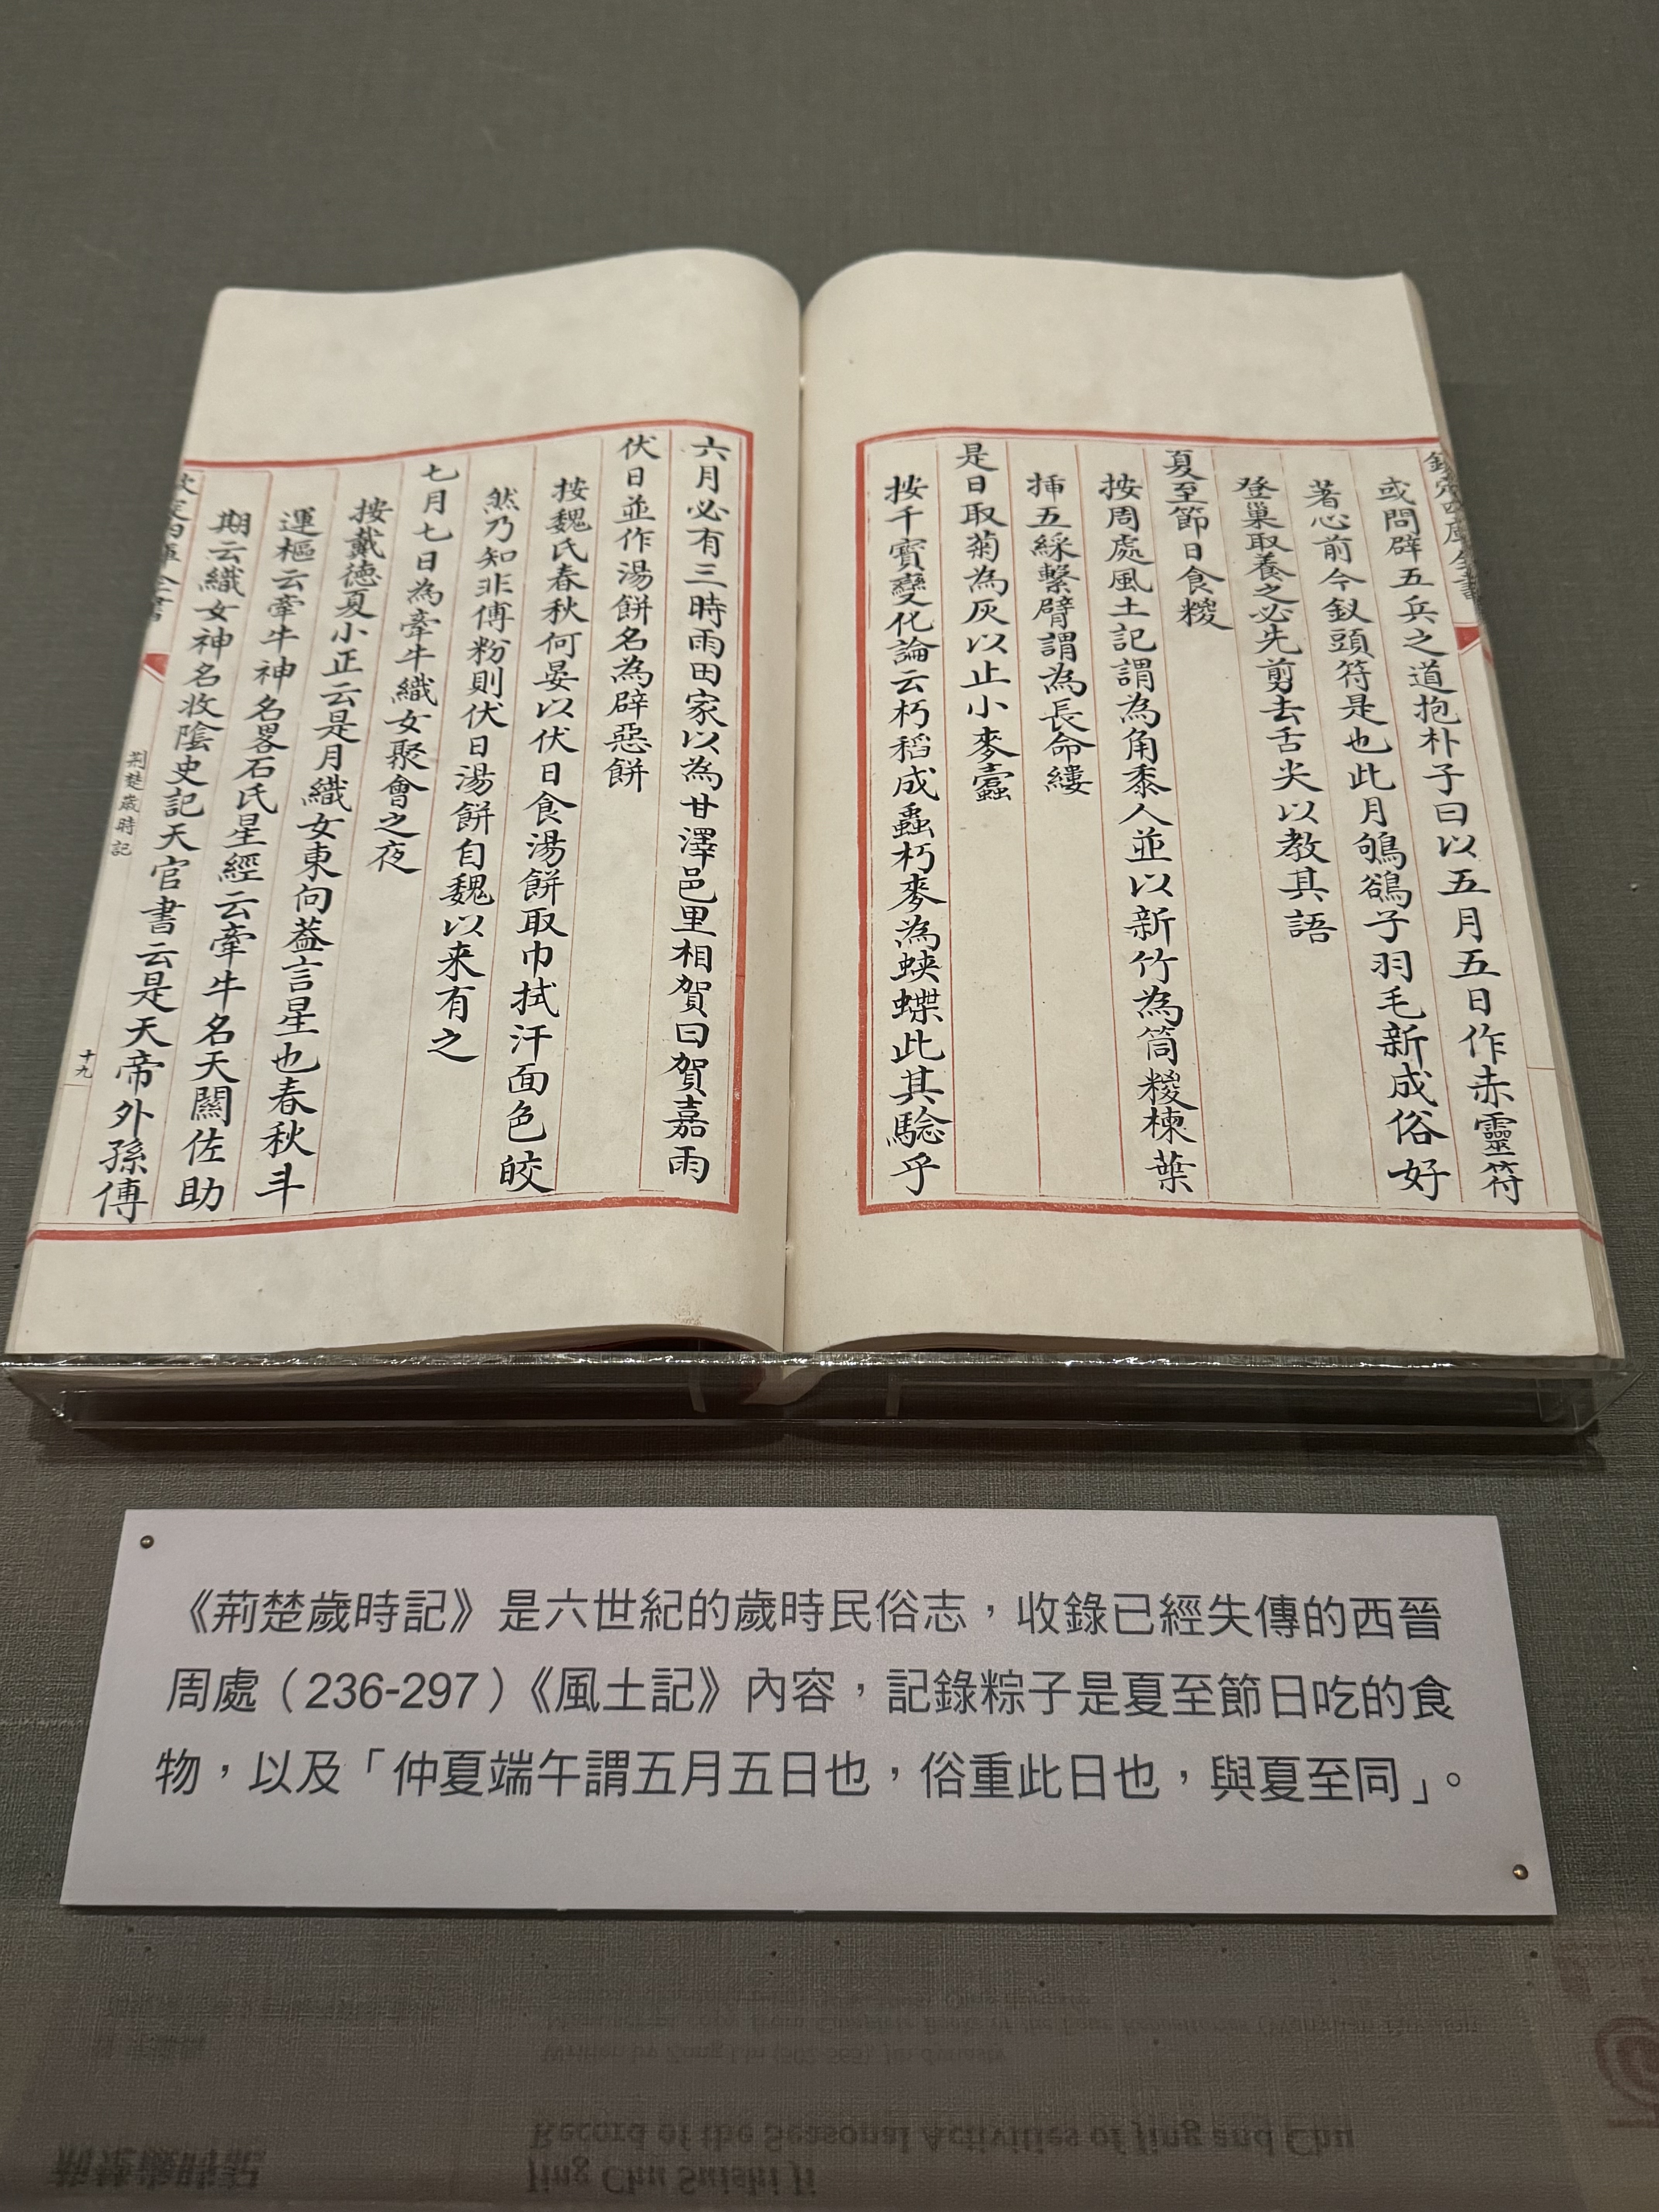 欽定四庫全書
或問辟五兵之道抱朴子曰以五月五日作赤靈符
著心前今釵頭符是也此月鴝鵒子羽毛新成俗好
登巢取養之必先剪去舌尖以教其語
夏至節日食糉
按周處風土記謂為角黍人並以新竹為筒糉楝葉
揷五綵繫臂謂為長命縷
是日取菊為灰以止小麥蠹
按干寳變化論云朽稻成蟲朽麥為蛺蝶此其騐乎
六月必有三時雨田家以為甘澤邑里相賀曰賀嘉雨
伏日並作湯餅名為辟惡餅
按魏氏春秋何晏以伏日食湯餅取巾拭汗面色皎
然乃知非傅粉則伏日湯餅自魏以来有之
七月七日為牽牛織女聚會之夜
按戴德夏小正云是月織女東向葢言星也春秋斗
運樞云牽牛神名畧石氏星經云牽牛名天關佐助
期云織女神名收陰史記天官書云是天帝外孫傅
欽定四庫全書
荆楚歲時記
十九
《荊楚歲時記》是六世紀的歲時民俗志，收錄已經失傳的西晉
周處（236-297）《風土記》內容，記錄粽子是夏至節日吃的食
物，以及「仲夏端午謂五月五日也，俗重此日也，與夏至同」。
荊楚歲時記
Jing Chu Suishi Ji
Record of the Seasonal Activities of Jing and Chu